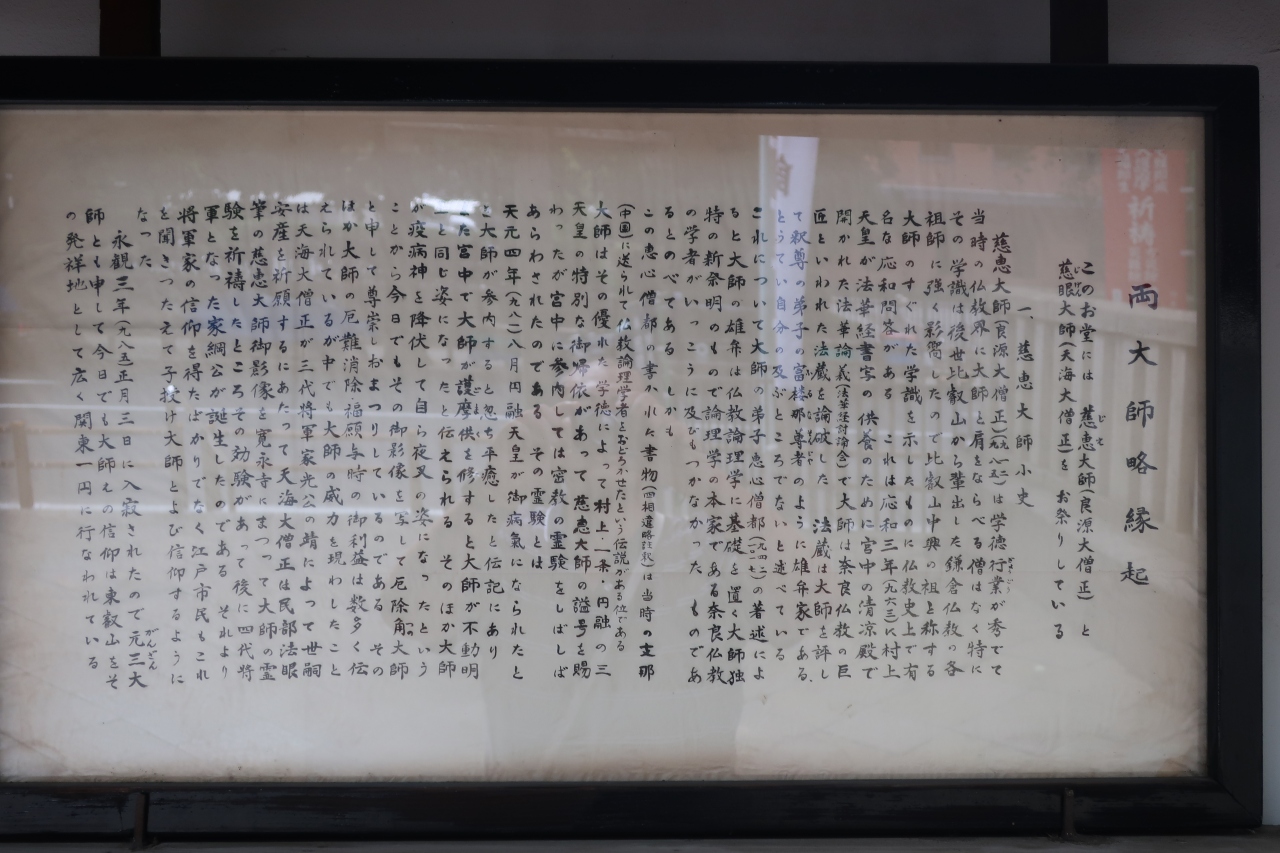 両大師略縁起
このお堂には 慈恵大師(良源大僧正) と
慈眼大師(天海大僧正)を お祭りしている
一、慈恵大師小史
慈恵大師(良源大僧正)(九一二 九八五)は学徳行業が秀でて
当時の仏教界に大師と肩をならべる僧はなく特に
その学識は後世比叡山から輩出した鎌倉仏教の各
祖師に強く影響したので比叡山中興の祖と称する
大師のすぐれた学識を示したものに仏教史上で有
名な応和問答がある これは応和三年(九六三)に村上
天皇が法華経書写の供養のために宮中の清凉殿で
開かれた法華論義(法華経討論会)で大師は奈良仏教の巨
匠といわれた法蔵を論破した 法蔵は大師を評し
て釈尊の弟子の富楼那尊者のように雄弁家である
とうてい自分の及ぶところでないと述べている
これについて大師の弟子恵心僧都(九四二 一〇一七)の著述によ
ると大師の雄弁は仏教論理学に基礎を置く大師独
特の新祭明のもので論理学の本家である奈良仏教
の学者がいっこうに及びもつかなかったものであ
るとのべてある しかも
この恵心僧都の書かれた書物(四相違略註釈)は当時の支那
(中国)に送られて仏教論理学者をおどろかせたという伝説がある位である
大師はその優れた学徳によって村上・一条・円融の三
天皇の特別な御帰依があって慈恵大師の謚号を賜
わったが宮中に参内しては密教の霊験をしばしば
あらわされたのである その霊験とは
天元四年(九八一)八月円融天皇が御病氣になられたと
き大師が参内すると忽ち平癒したと伝記にあり
また宮中で大師が護摩供を修すると大師が不動明
王と同じ姿になったと伝えられる そのほか大師
が疫病神を降伏して自ら夜叉の姿になったという
ことから今日でもその御影像を写して厄除角大師
と申して尊崇しおまつりしているのである その
ほか大師の厄難消除福願与時の御利益は数多く伝
えられているが中でも大師の威力を現わしたこと
は天海大僧正が三代将軍家光公の靖によって世嗣
安産を祈願するにあたって天海大僧正は民部法眼
筆の慈恵大師御影像を寛永寺にまつって大師の霊
験を祈禱したところその効験があって後に四代将
軍となった家綱公が誕生したのである それより
将軍家の信仰を得たばかりでなく江戸市民もこれ
を聞きつたえて子授け大師とよび信仰するように
なった
永観三年(九八五)正月三日に入寂されたので元三大
師とも申して今日でも大師えの信仰は東叡山をそ
の発祥地として広く関東一円に行なわれている